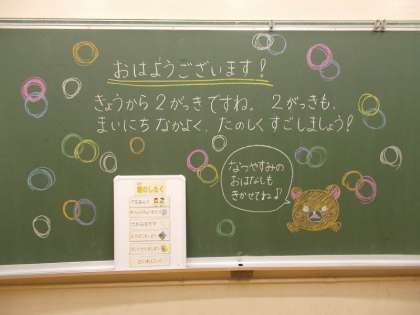 おはようございます！
きょうから２がっきですね。２がっきも、
まいにちなかよく、たのしくすごしましょう！
なつやすみの
おはなしも
きかせてね♪
朝のしたく